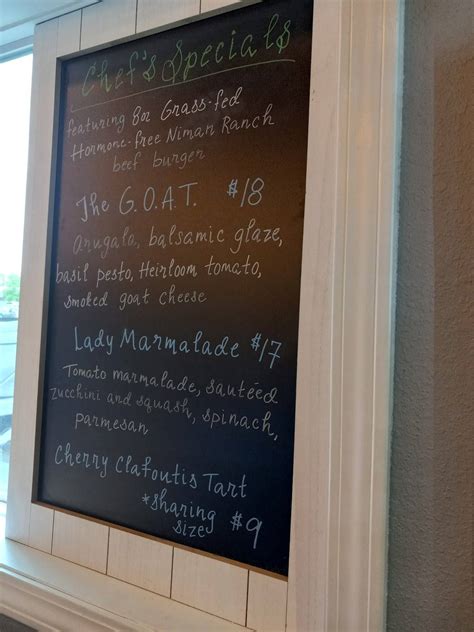 Chef's Specials
featuring 8oz Grass-fed
Hormone-free Niman Ranch
beef burger
The G.O.A.T. $18
arugala, balsamic glaze,
basil pesto, Heirloom tomato,
smoked goat cheese
Lady Marmalade $17
Tomato marmalade, sautéed
zucchini and squash, spinach,
parmesan
Cherry Clafoutis Tart
*sharing
size $9